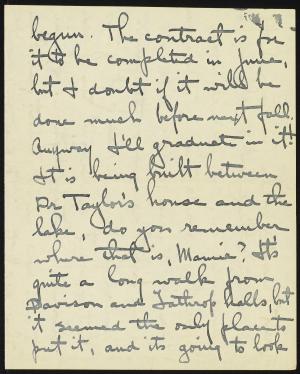 begun. The contract is for
it to be completed in June,
but I doubt if it will be
done much before next fall.
Anyway I'll graduate in it!
It is being built between
Dr Taylor's house and the
lake, do you remember
where that is, Mamie? It's
quite a long walk from
Davison and Lathrop halls, but
it seemed the only place to
put it, and its going to look